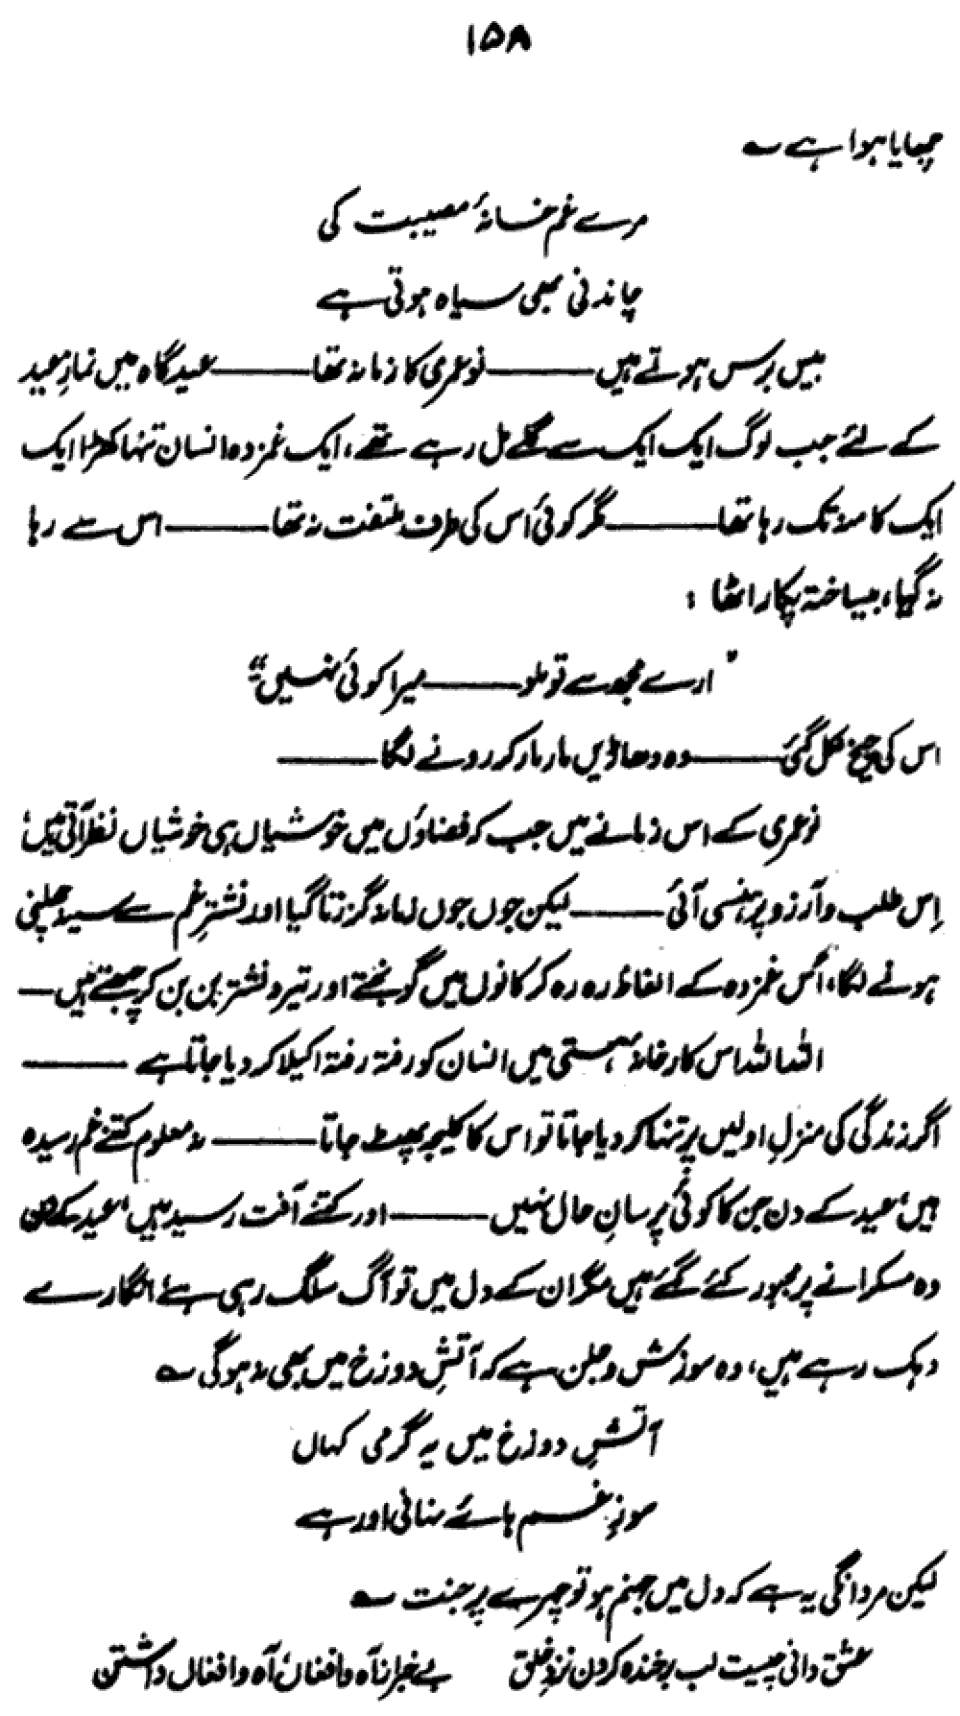 ۱۵۸
چھایا ہوا ہے ؎
مرے غم خانۂ مصیبت کی
چاندنی بھی سیاہ ہوتی ہے
بیس برس ہوتے ہیں ——— نو عمری کا زمانہ تھا ——— عیدگاہ میں نمازِ عید
کے لئے جب لوگ ایک ایک سے گلے مل رہے تھے، ایک غمزدہ انسان تنہا کھڑا ایک
ایک کا منہ تک رہا تھا ——— مگر کوئی اس کی طرف ملتفت نہ تھا ——— اس سے رہا
نہ گیا، بیساختہ پکار اٹھا :
"ارے مجھ سے تو ملو ——— میرا کوئی نہیں"
اس کی چیخ نکل گئی ——— وہ دھاڑیں مار مار کر رونے لگا ———
نو عمری کے اس زمانے میں جب کہ فضاؤں میں خوشیاں ہی خوشیاں نظر آتی ہیں،
اِس طلب و آرزو پر ہنسی آئی ——— لیکن جوں جوں زمانہ گزرتا گیا اور نشترِ غم سے سینہ چھلنی
ہونے لگا، اُس غمزدہ کے الفاظ رہ رہ کر کانوں میں گونجتے اور تیر و نشتر بن بن کر چبھتے ہیں —
اللہ اللہ اس کارخانۂ ہستی میں انسان کو رفتہ رفتہ اکیلا کر دیا جاتا ہے ———
اگر زندگی کی منزلِ اولیں پر تنہا کر دیا جاتا تو اس کا کلیجہ پھٹ جاتا ——— نہ معلوم کتنے غم رسیدہ
ہیں، عید کے دن جن کا کوئی پرسانِ حال نہیں ——— اور کتنے آفت رسیدہ ہیں، عید کے دن
وہ مسکرانے پر مجبور کئے گئے ہیں مگر ان کے دل میں تو آگ سلگ رہی ہے، انگارے
دہک رہے ہیں، وہ سوزش و جلن ہے کہ آتشِ دوزخ میں بھی نہ ہوگی ؎
آتشِ دوزخ میں یہ گرمی کہاں
سوزِ غم ہائے نہانی اور ہے
لیکن مردانگی یہ ہے کہ دل میں جہنم ہو تو چہرے پر جنت ؎
عشق دانی چیست لب پر خندہ کردن نزدِ خلق بے خبر از آہ و افغاں، آہ و افغاں داشتن